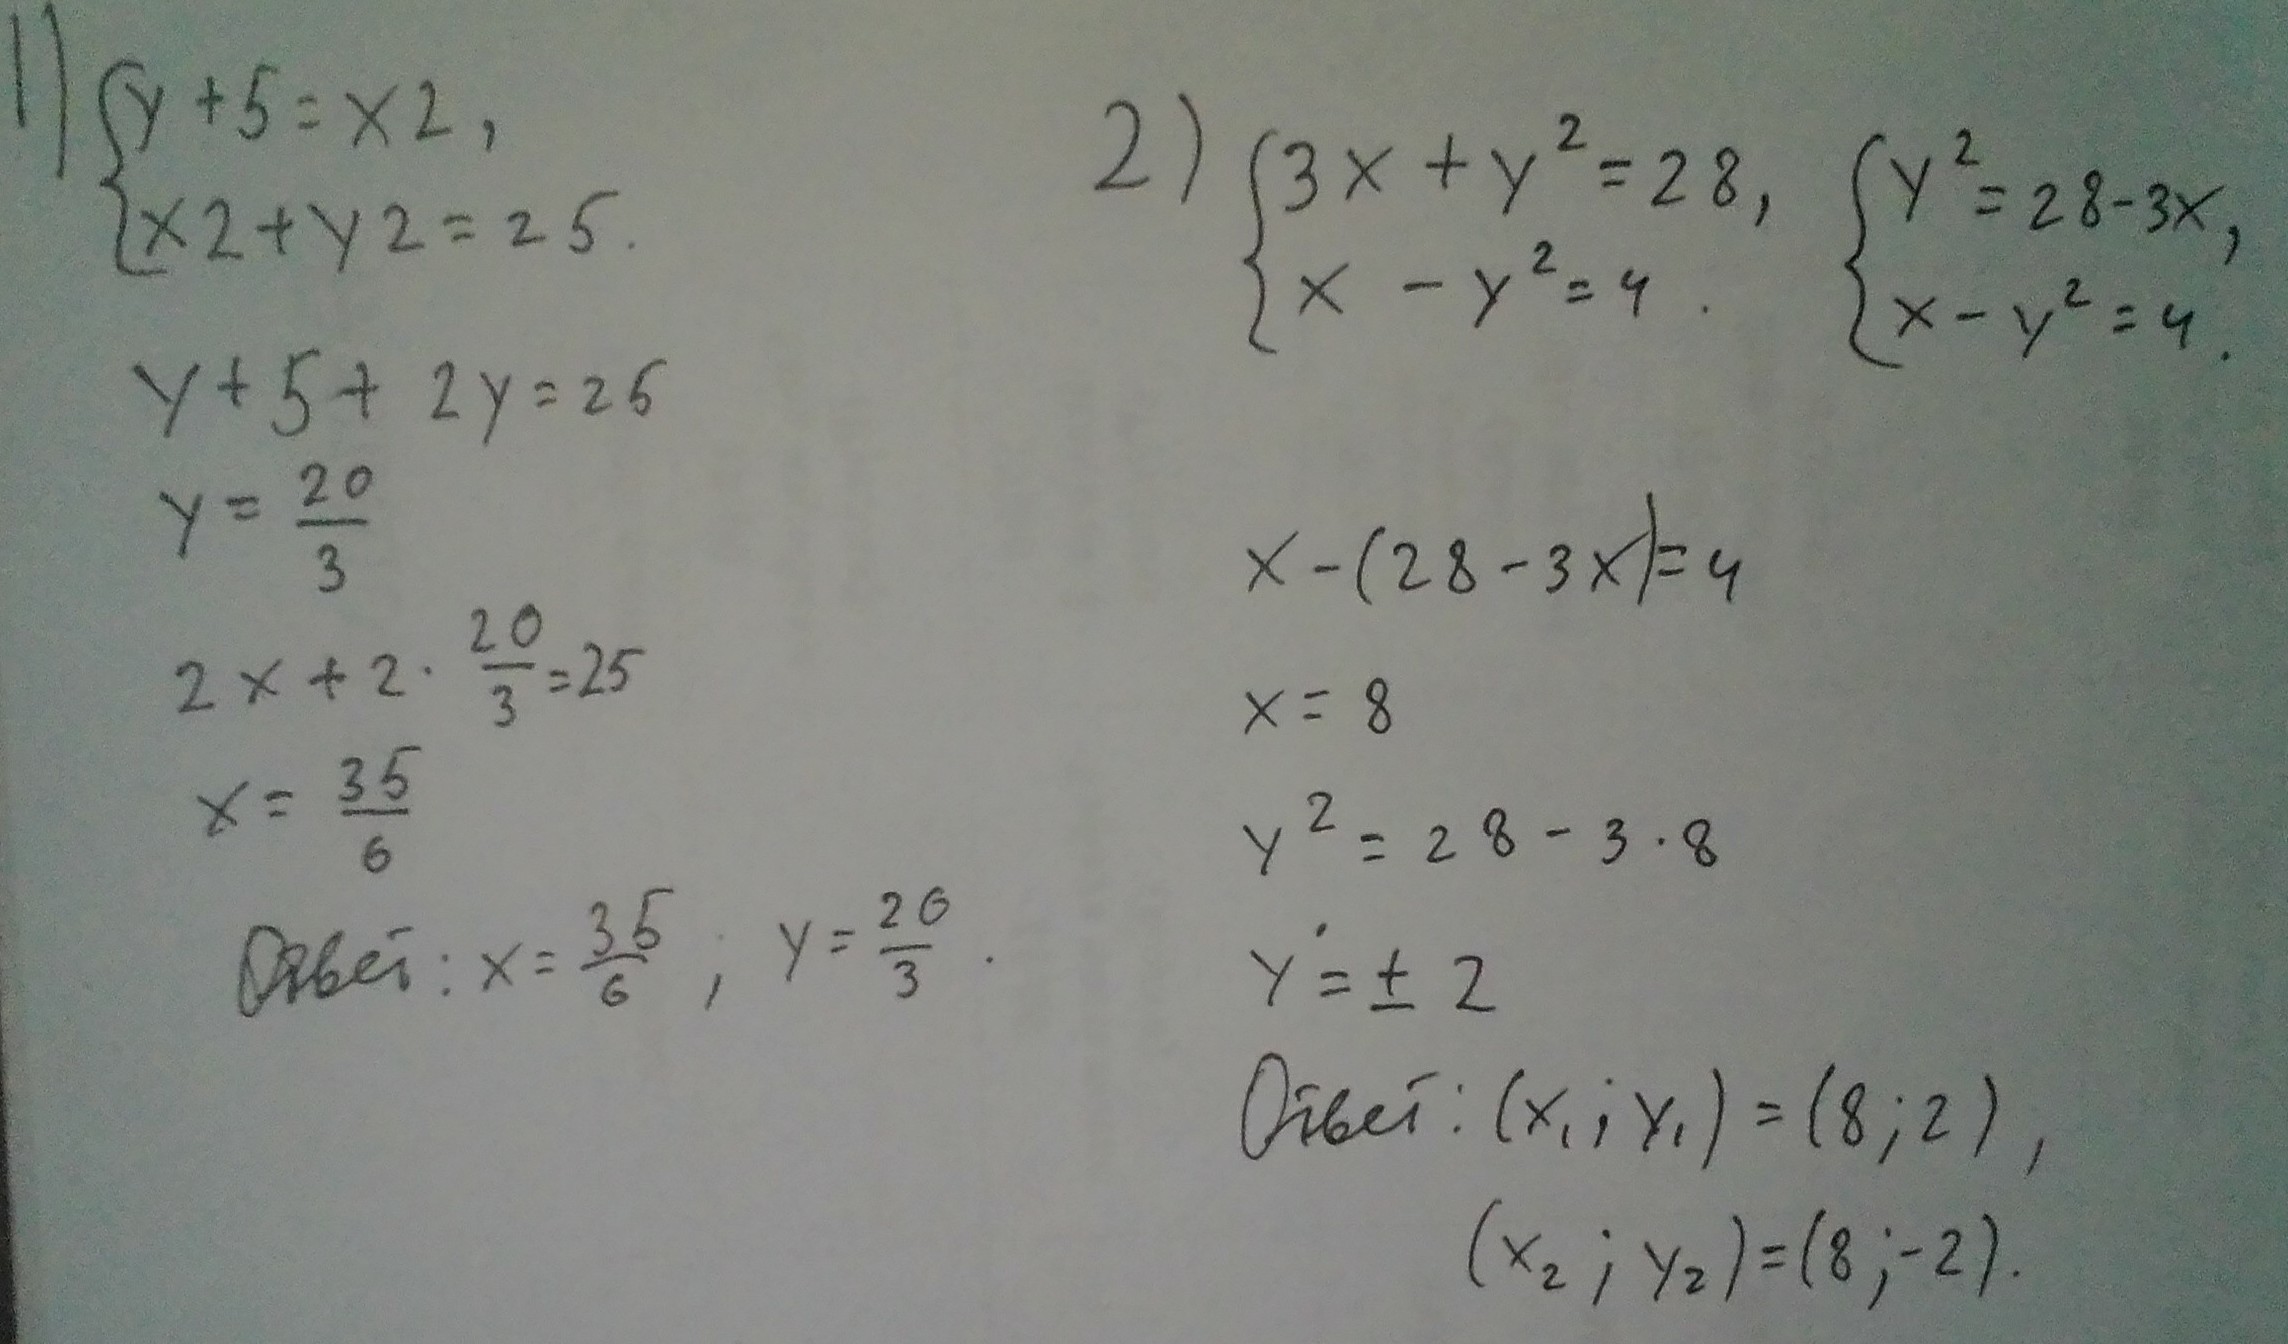 1) { y + 5 = x2,
x2 + y2 = 25.
y + 5 + 2y = 25
y = 20/3
2x + 2 · 20/3 = 25
x = 35/6
Ответ: x = 35/6 ; y = 20/3 .
2) { 3x + y² = 28, { y² = 28 - 3x,
x - y² = 4 . x - y² = 4.
x - (28 - 3x) = 4
x = 8
y² = 28 - 3 · 8
y = ± 2
Ответ: (x₁ ; y₁) = (8 ; 2) ,
(x₂ ; y₂) = (8 ; -2).